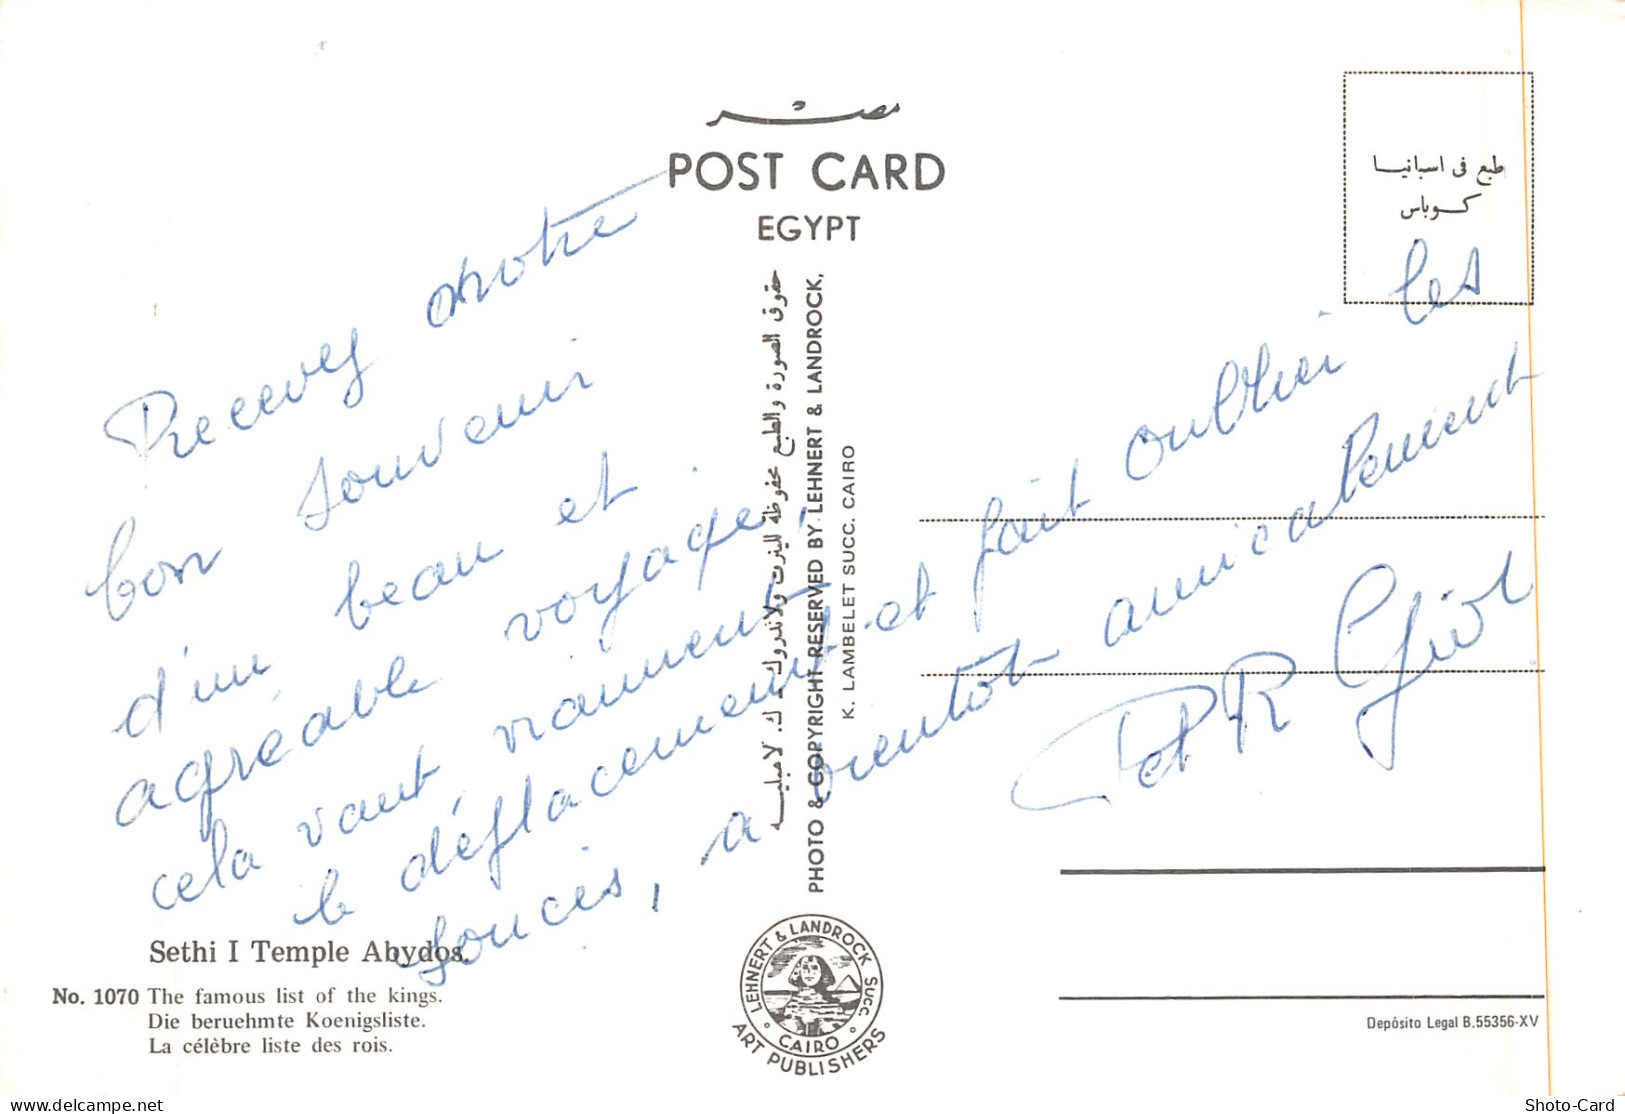 مصر
POST CARD
EGYPT
طبع فى اسبانيا
كوباس
Recevez notre
bon souvenir
d'un beau et
agréable voyage,
cela vaut vraiment
le déplacement et fait oublier les
soucis, a bientôt amicalement
P et R
حقوق الصورة والطبع محفوظة للينرت ولاندروك - ك. لامبليه
PHOTO & COPYRIGHT RESERVED BY LEHNERT & LANDROCK,
K. LAMBELET SUCC. CAIRO
Sethi I Temple Abydos.
No. 1070 The famous list of the kings.
Die beruehmte Koenigsliste.
La célèbre liste des rois.
LEHNERT & LANDROCK SUCC.
CAIRO
ART PUBLISHERS
Depósito Legal B.55356-XV
delcampe.net
Shoto-Card